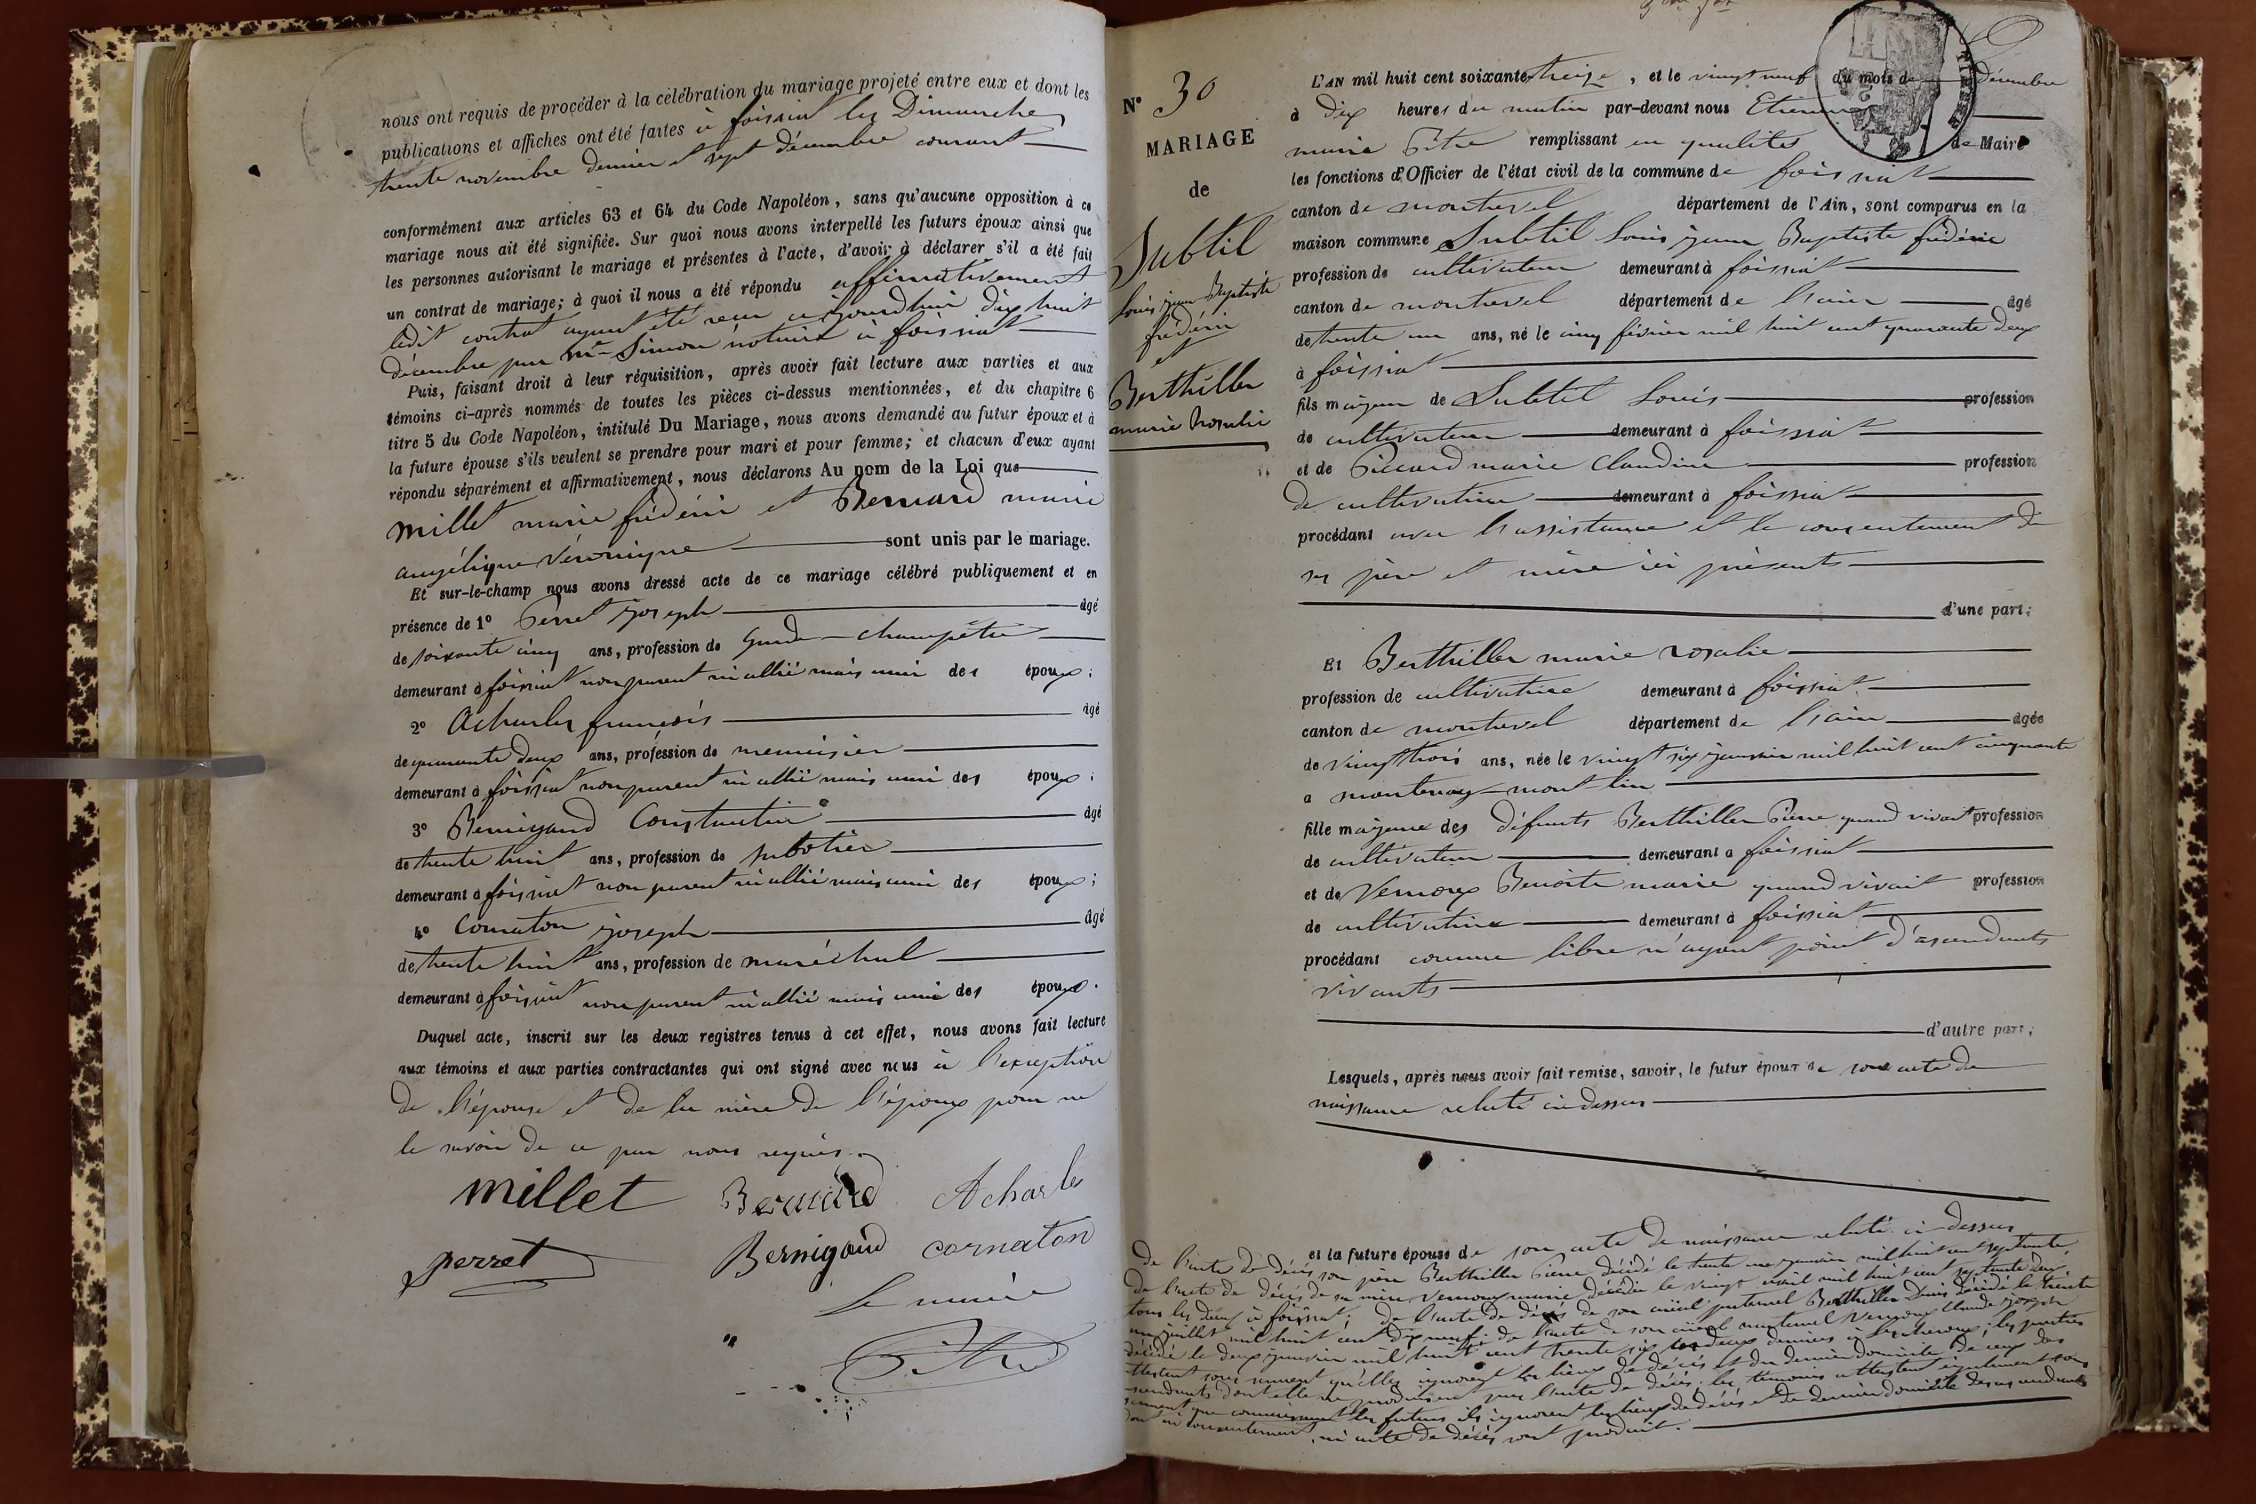 nous ont requis de procéder à la célébration du mariage projeté entre eux et dont les
publications et affiches ont été faites à foissiat les Dimanches
trente novembre dernier et sept décembre courant
conformément aux articles 63 et 64 du Code Napoléon, sans qu'aucune opposition à ce
mariage nous ait été signifiée. Sur quoi nous avons interpellé les futurs époux ainsi que
les personnes autorisant le mariage et présentes à l'acte, d'avoir à déclarer s'il a été fait
un contrat de mariage; à quoi il nous a été répondu affirmativement
ledit contrat ayant été recu aujourdhui dix huit
décembre par Me Simon notaire à foissiat
Puis, faisant droit à leur réquisition, après avoir fait lecture aux parties et aux
témoins ci-après nommés de toutes les pièces ci-dessus mentionnées, et du chapitre 6
titre 5 du Code Napoléon, intitulé Du Mariage, nous avons demandé au futur époux et à
la future épouse s'ils veulent se prendre pour mari et pour femme; et chacun d'eux ayant
répondu séparément et affirmativement, nous déclarons Au nom de la Loi que
millet marie frédéric et Bernard marie
angélique véronique sont unis par le mariage.
Et sur-le-champ nous avons dressé acte de ce mariage célébré publiquement et en
présence de 1º Perret joseph âgé
de soixante cinq ans, profession de Garde-champêtre
demeurant à foissiat non parent ni allié mais ami des époux;
2º Acharles françois âgé
de quarante deux ans, profession de menuisier
demeurant à foissiat non parent ni allié mais ami des époux;
3º Bernigaud Constantin âgé
de trente huit ans, profession de sabotier
demeurant à foissiat non parent ni allié mais ami des époux;
4º Cornaton joseph âgé
de trente huit ans, profession de maréchal
demeurant à foissiat non parent ni allié mais ami des époux.
Duquel acte, inscrit sur les deux registres tenus à cet effet, nous avons fait lecture
aux témoins et aux parties contractantes qui ont signé avec nous à l'exception
de l'épouse et de la mère de l'époux pour ne
le savoir de ce par nous requis.
millet Bernard Acharles
perret Bernigaud cornaton
Le maire
Pitre
Nº 30
MARIAGE
de
Subtil
Louis jean Baptiste
frédéric
et
Berthiller
marie Rosalie
L'AN mil huit cent soixante treize, et le vingt neuf du mois de Décembre
à dix heures du matin par-devant nous Etienne
marie Pitre remplissant en qualité de Maire
les fonctions d'Officier de l'état civil de la commune de foissiat
canton de montrevel département de l'Ain, sont comparus en la
maison commune Subtil Louis jean Baptiste frédéric
profession de cultivateur demeurant à foissiat
canton de montrevel département de l'ain âgé
de trente un ans, né le cinq février mil huit cent quarante deux
à foissiat
fils majeur de Subtil Louis profession
de cultivateur demeurant à foissiat
et de Piccard marie Claudine profession
de cultivatrice demeurant à foissiat
procédant avec l'assistance et le consentement de
ses père et mère ici présents
d'une part;
Et Berthiller marie rosalie
profession de cultivatrice demeurant à foissiat
canton de montrevel département de l'ain âgée
de vingt trois ans, née le vingt six janvier mil huit cent cinquante
a montenay-mont-lin
fille majeure des défunts Berthiller Pierre quand vivait profession
de cultivateur demeurant à foissiat
et de Vernoux Benoite marie quand vivait profession
de cultivatrice demeurant à foissiat
procédant comme libre n'ayant point d'ascendants
vivants
d'autre part;
Lesquels, après nous avoir fait remise, savoir, le futur époux de son acte de
naissance relaté ci-dessus
et la future épouse de son acte de naissance relaté ci-dessus
de l'acte de décès son père Berthiller Pierre décédé le trente un janvier mil huit cent septante
de l'acte de décès de sa mère Vernoux marie décédée le vingt avril mil huit cent septante deux
tous les deux à foissiat; de l'acte de décès de son aïeul paternel Berthiller Denis décédé le trente
un juillet mil huit cent dix neuf; de l'acte de son aïeul maternel Vernoux Claude joseph
décédé le deux janvier mil huit cent trente six les deux derniers à; les parties
attestent sous serment qu'elles ignorent les lieux de décès et du dernier domicile de ceux des
ascendants dont elles ne produisent pas l'acte de décès; les témoins attestent également sous
serment que connaissant les futurs ils ignorent les lieux de décès et de dernier domicile des ascendants
dont ni consentement, ni acte de décès sont produit.